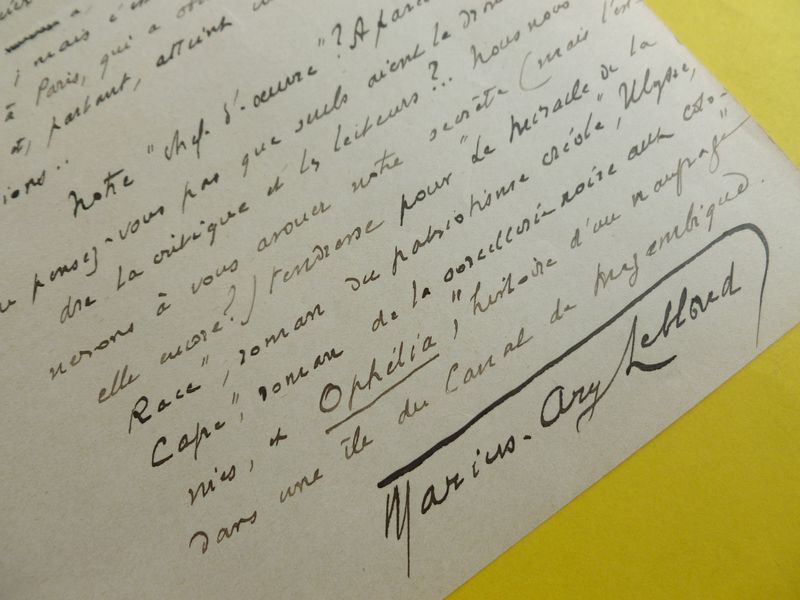 ; mais c'est
à Paris, qui a
et, partant, atteint
ions..
Notre "chef-d'œuvre"? A part
pensez-vous pas que seuls aient le droit
dre la critique et les lecteurs?... Nous nous
nerons à vous avouer notre secrète (mais l'est-
elle encore?) tendresse pour "Le Miracle de la
Race", roman du patriotisme créole, "Ulysse,
Cafre", roman de la sorcellerie noire aux colo-
nies, et "Ophélia", histoire d'un naufrage
dans une île du Canal de Mozambique.
Marius-Ary Leblond